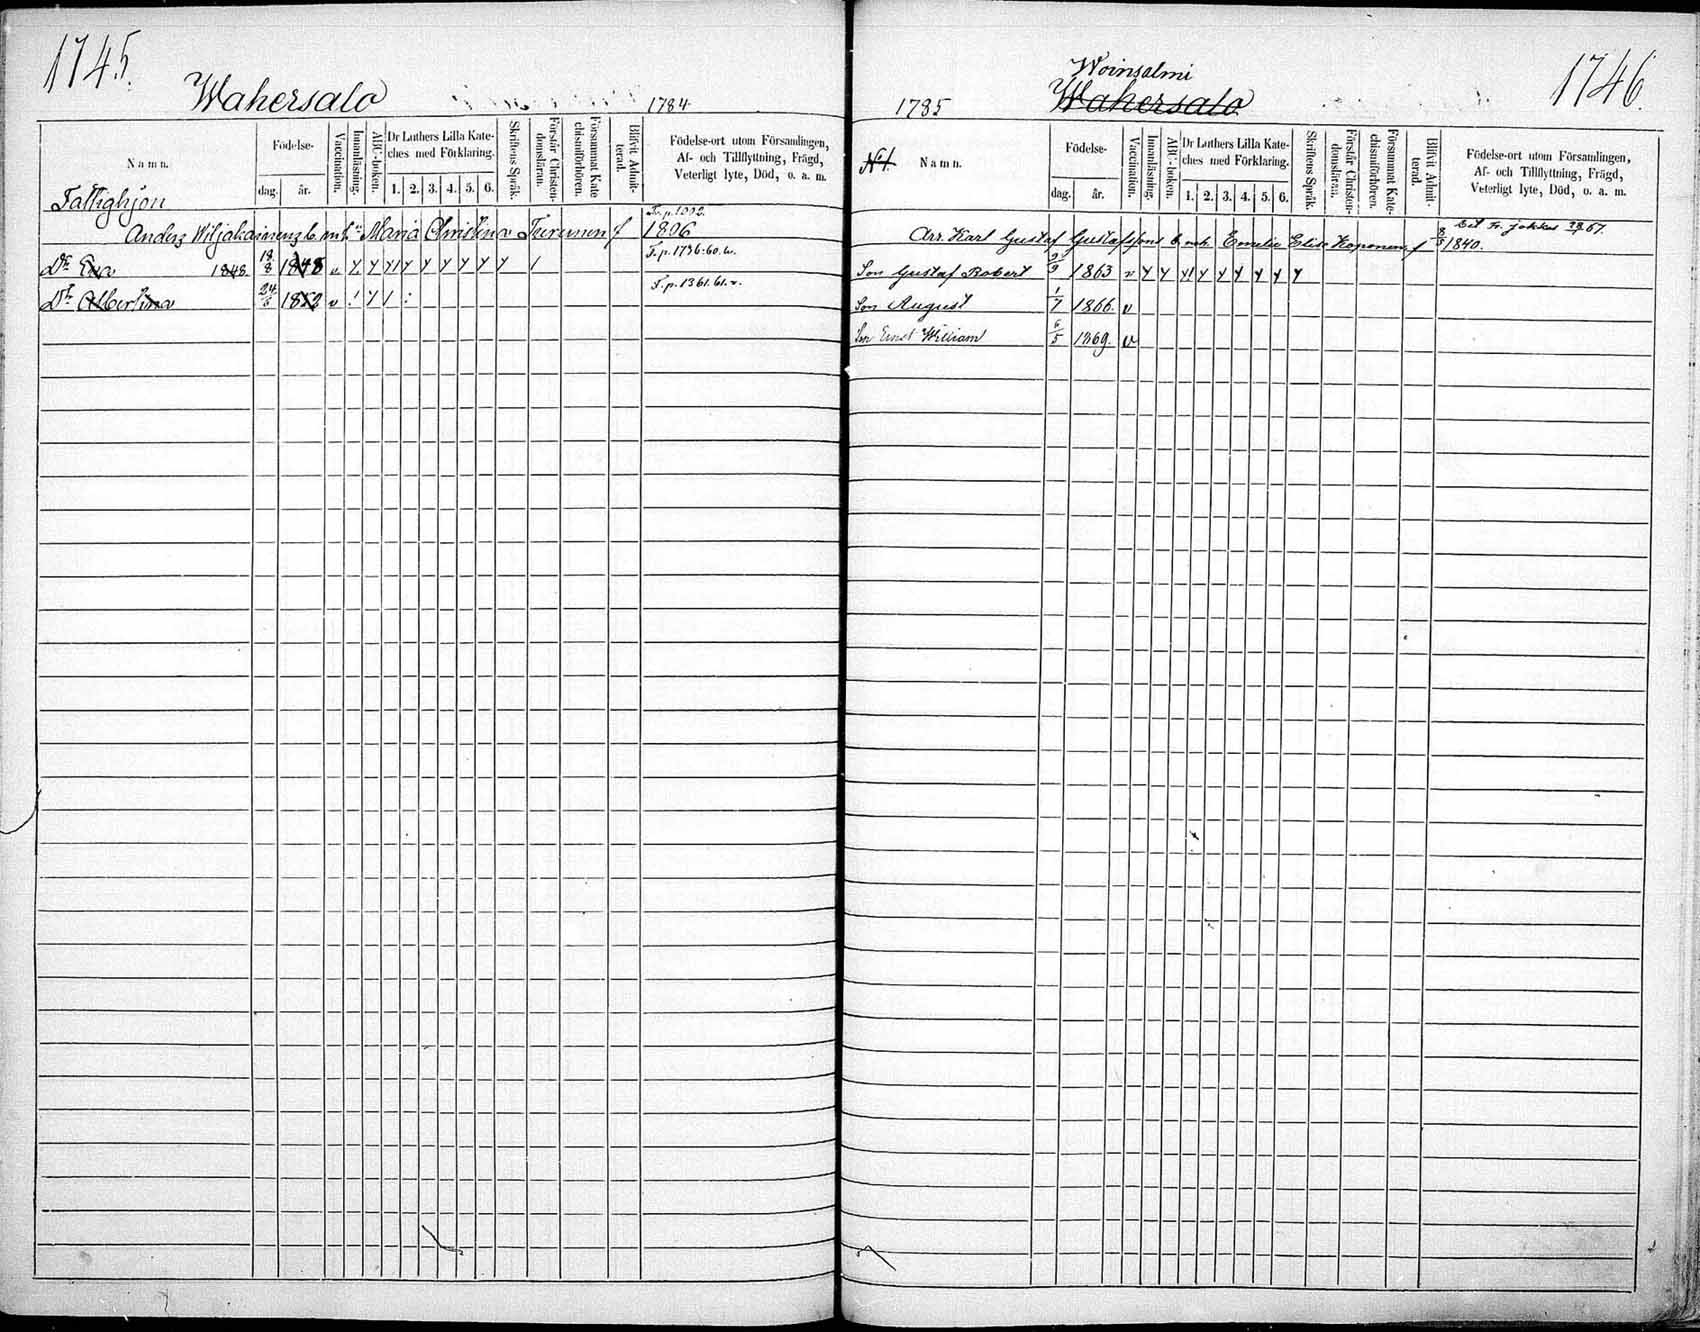 1745.
Wahersalo
1784
Namn.
Födelse-
dag.
år.
Vaccination.
Innanläsning.
ABC-boken.
Dr Luthers Lilla Kate-
ches med Förklaring.
1. 2. 3. 4. 5. 6.
Skriftens Språk.
Förstår Christen-
domsläran.
Försummat Kate
chismiförhören.
Blifvit Admit-
terad.
Födelse-ort utom Församlingen,
Af- och Tillflyttning, Frägd,
Veterligt lyte, Död, o. a. m.
Fattighjon
Fr. p. 1002.
Anders Wiljahainenz b. Maria Christina Turunen f 1806
Dr Eva 1848. 18/8 1848 v
F. p. 1736. 60.
Dr Albertina 24/5 1852 v
F. p. 1361. 61. v.
1746.
Woinsalmi
1735
Wahersalo
N:1.
Namn.
Födelse-
dag.
år.
Vaccination.
Innanläsning.
ABC-boken.
Dr Luthers Lilla Kate-
ches med Förklaring.
1. 2. 3. 4. 5. 6.
Skriftens Språk.
Förstår Christen-
domsläran.
Försummat Kate-
chismiförhören.
Blifvit Admit-
terad.
Födelse-ort utom Församlingen,
Af- och Tillflyttning, Frägd,
Veterligt lyte, Död, o. a. m.
Fr. jokkas 67.
Arr. Karl Gustaf Gustafssons Emelie Elise Koponen f 8/5 1840.
Son Gustaf Robert 1863 v
Son August 1/7 1866. v
Son Ernst William 6/5 1869. v